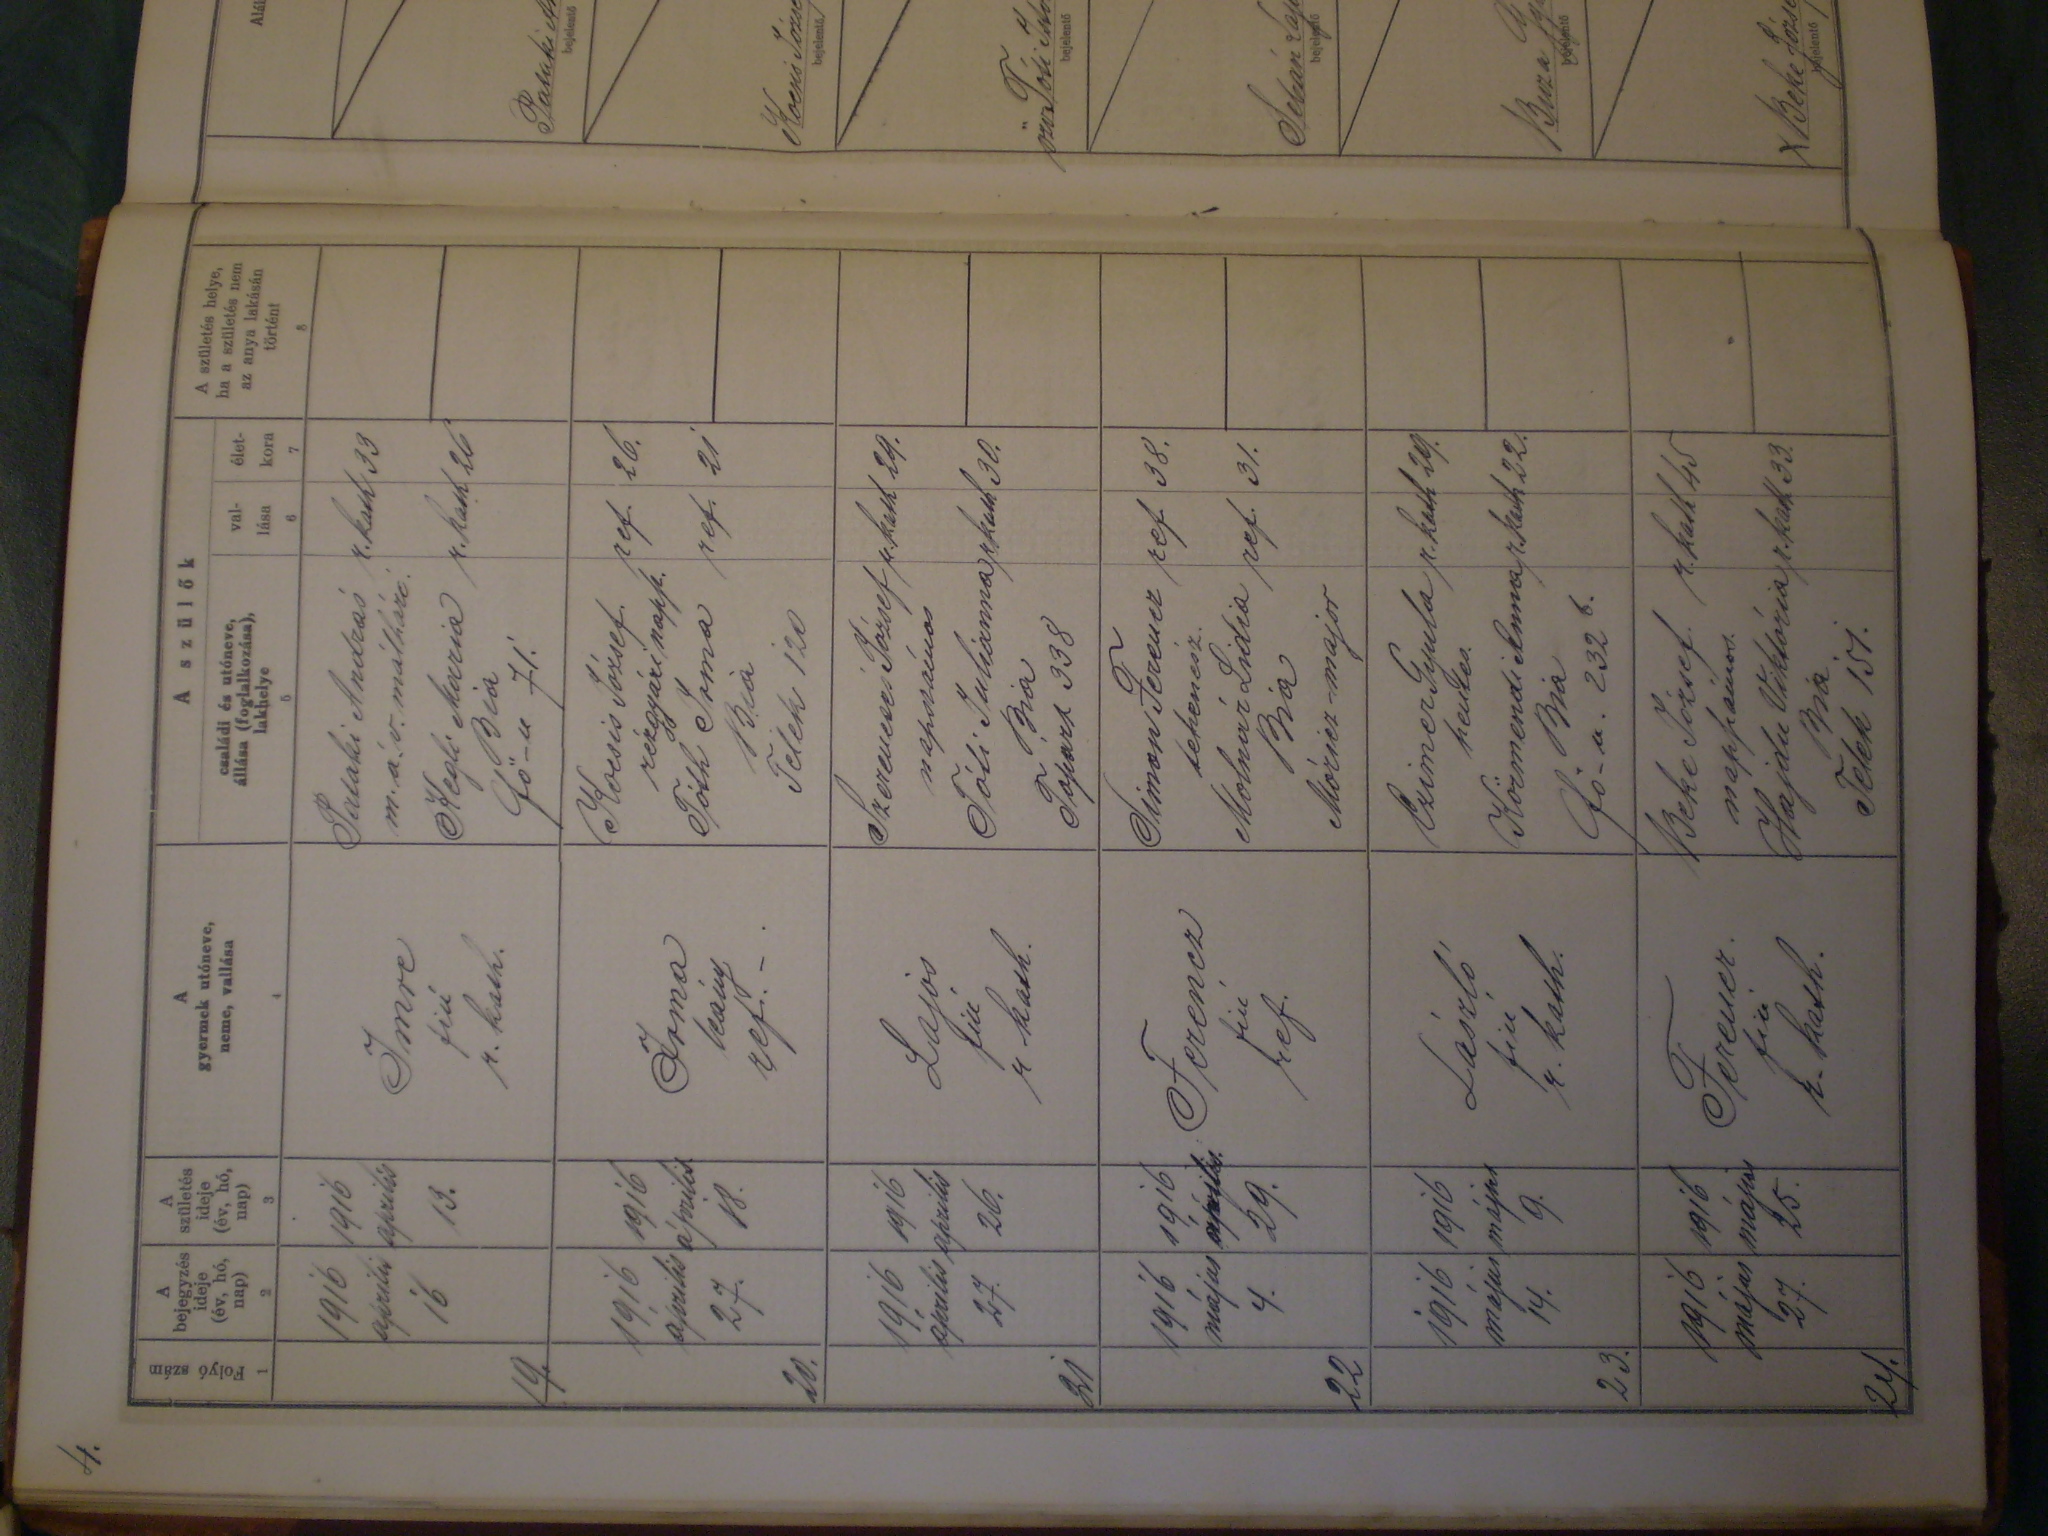 4.
Folyó szám
1
A
bejegyzés
ideje
(év, hó,
nap)
2
A
születés
ideje
(év, hó,
nap)
3
A
gyermek utóneve,
neme, vallása
4
A szülők
családi és utóneve,
állása (foglalkozása),
lakhelye
5
val-
lása
6
élet-
kora
7
A születés helye,
ha a születés nem
az anya lakásán
történt
8
19.
1916
április
16
1916
április
13.
Imre
fiú
r. kath.
Pataki András r. kath 33
m.á.v. málházó.
Kegli Mária r. kath. 26
Bia
Fő-u 71.
Pataki
bejelentő
20.
1916
április
27.
1916
április
18.
Irma
leány
ref. –.
Kocsis József ref. 26.
rézgyári napsz.
Tóth Irma ref. 21
Bia
Telek 120
Kocsis József
bejelentő
21
1916
április
27.
1916
április
26.
Lajos
fiú
r. kath.
Szerencsi József r. kath 29.
napszámos
Tóti Julianna r. kath 30.
Bia
Tópark 338
özv. Tóti
bejelentő
22
1916
május
4.
1916
április.
29.
Ferencz
fiú
ref.
Simon Ferencz ref 38.
tehenész.
Molnár Lidia ref. 31.
Bia
Móricz-major
bejelentő
23.
1916
május
14.
1916
május
9.
László
fiú
r. kath.
Czimer Gyula r. kath 29.
hentes.
Körmendi Anna r. kath 22.
Bia
Fő-u. 232 b.
Buza
bejelentő
24.
1916
május
27.
1916
május
25.
Ferencz.
fiú
r. kath.
Beke József. r. kath 45
napszámos.
Hajdu Viktória r. kath 33.
Bia
Telek 151.
X Beke József
bejelentő